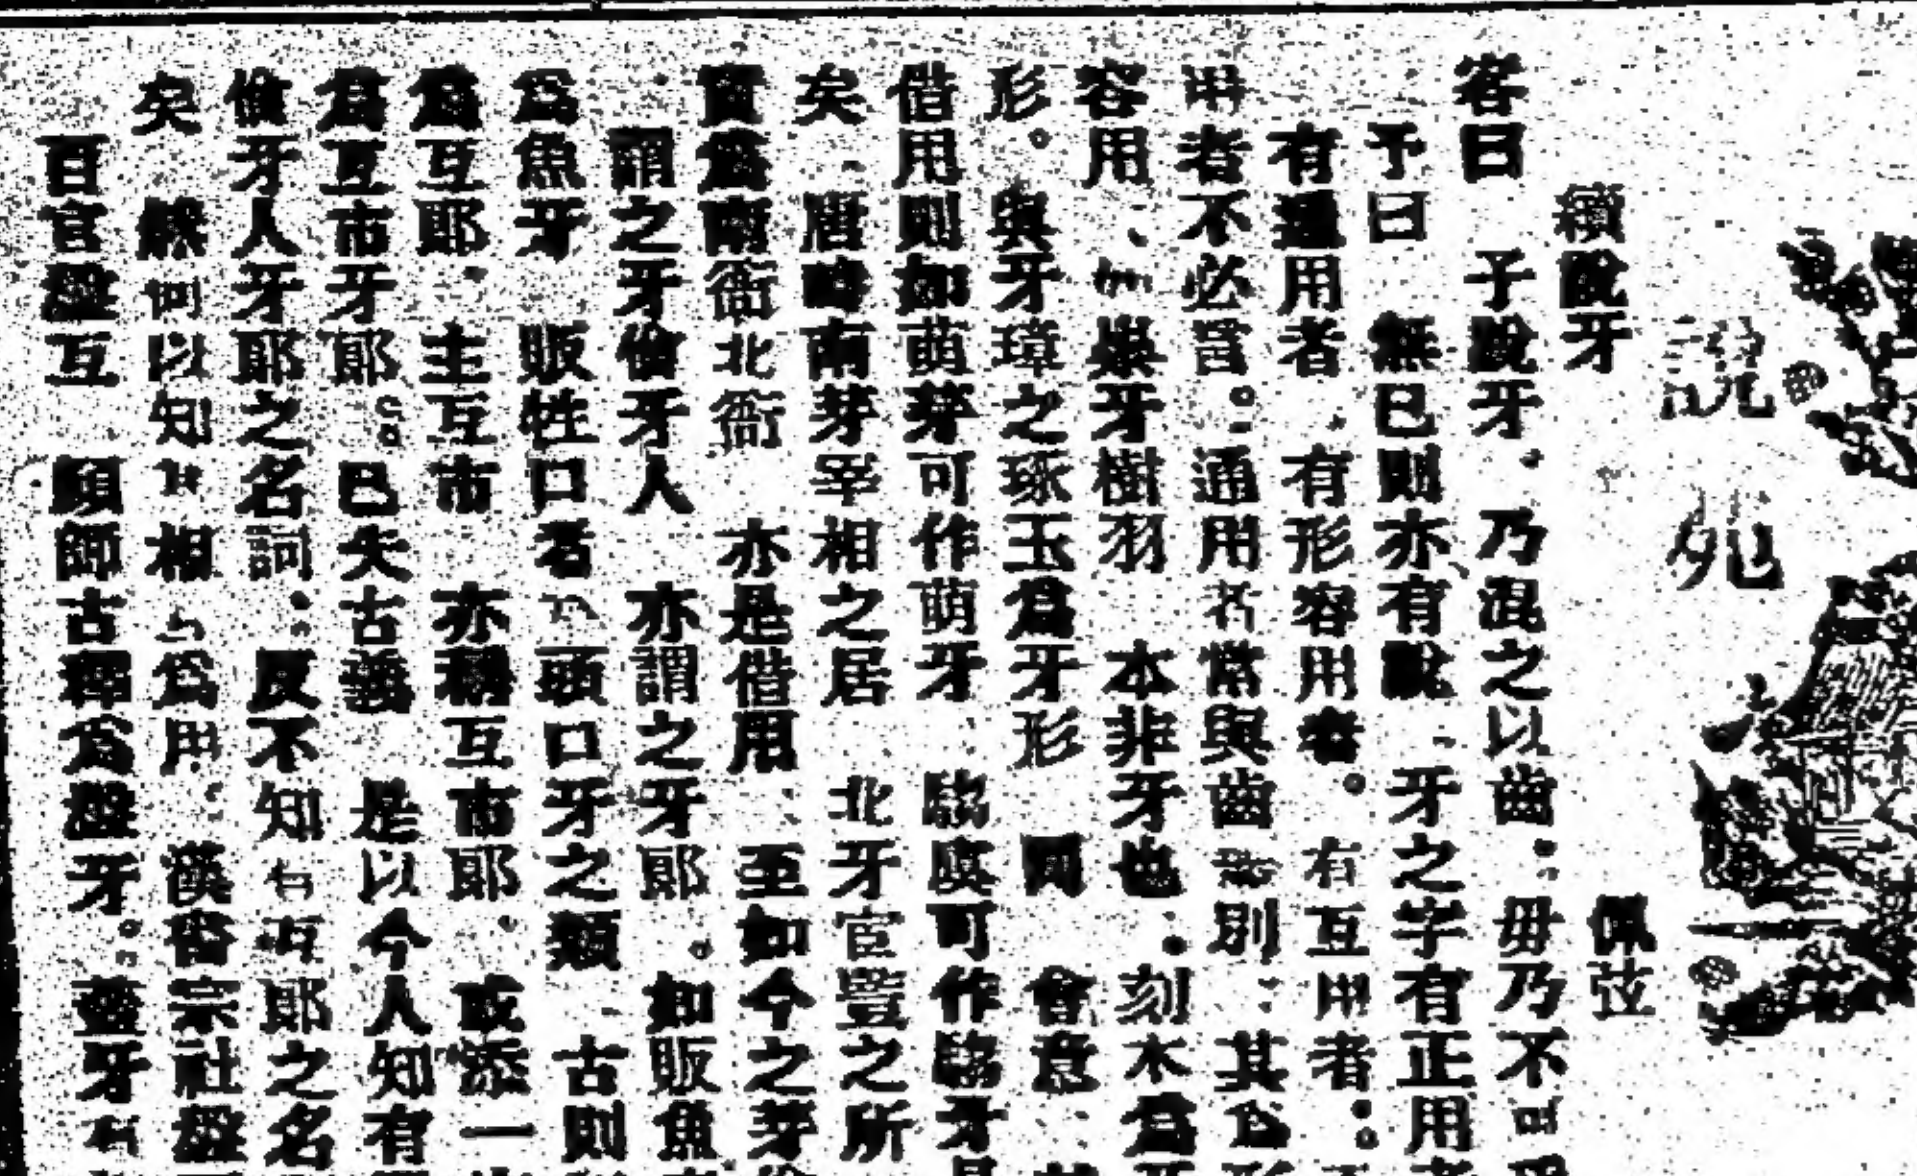 說苑
續說牙 佩弦
客曰 子說牙．乃混之以齒．毋乃不
予曰 無已則亦有說 牙之字有正用
有通用者．有形容用者。有互用者。
者不必言。通用者常與齒別 其為
容用、如 牙樹羽 本非牙也．刻木為
形。與牙璋之琢玉為牙形 同 會意
借用則如萌芽可作萌牙 騶虞可作騶牙
矣．唐時南芽宰相之居 北牙宦豎之所
實為南衙北衙 亦是借用．至如今之芽
謂之牙儈牙人 亦謂之牙郎。如販魚
為魚牙 販牲口者 為頭口牙之類 古則
為互郎．主互市 亦稱互市郎．或添一
為互市牙郎。已失古義 是以今人知有
儈牙人牙郎之名詞．反不知有互郎之名
矣 然何以知其相 為用．漢書宗社盤
百官盤互 顏師古釋為盤牙。盤牙